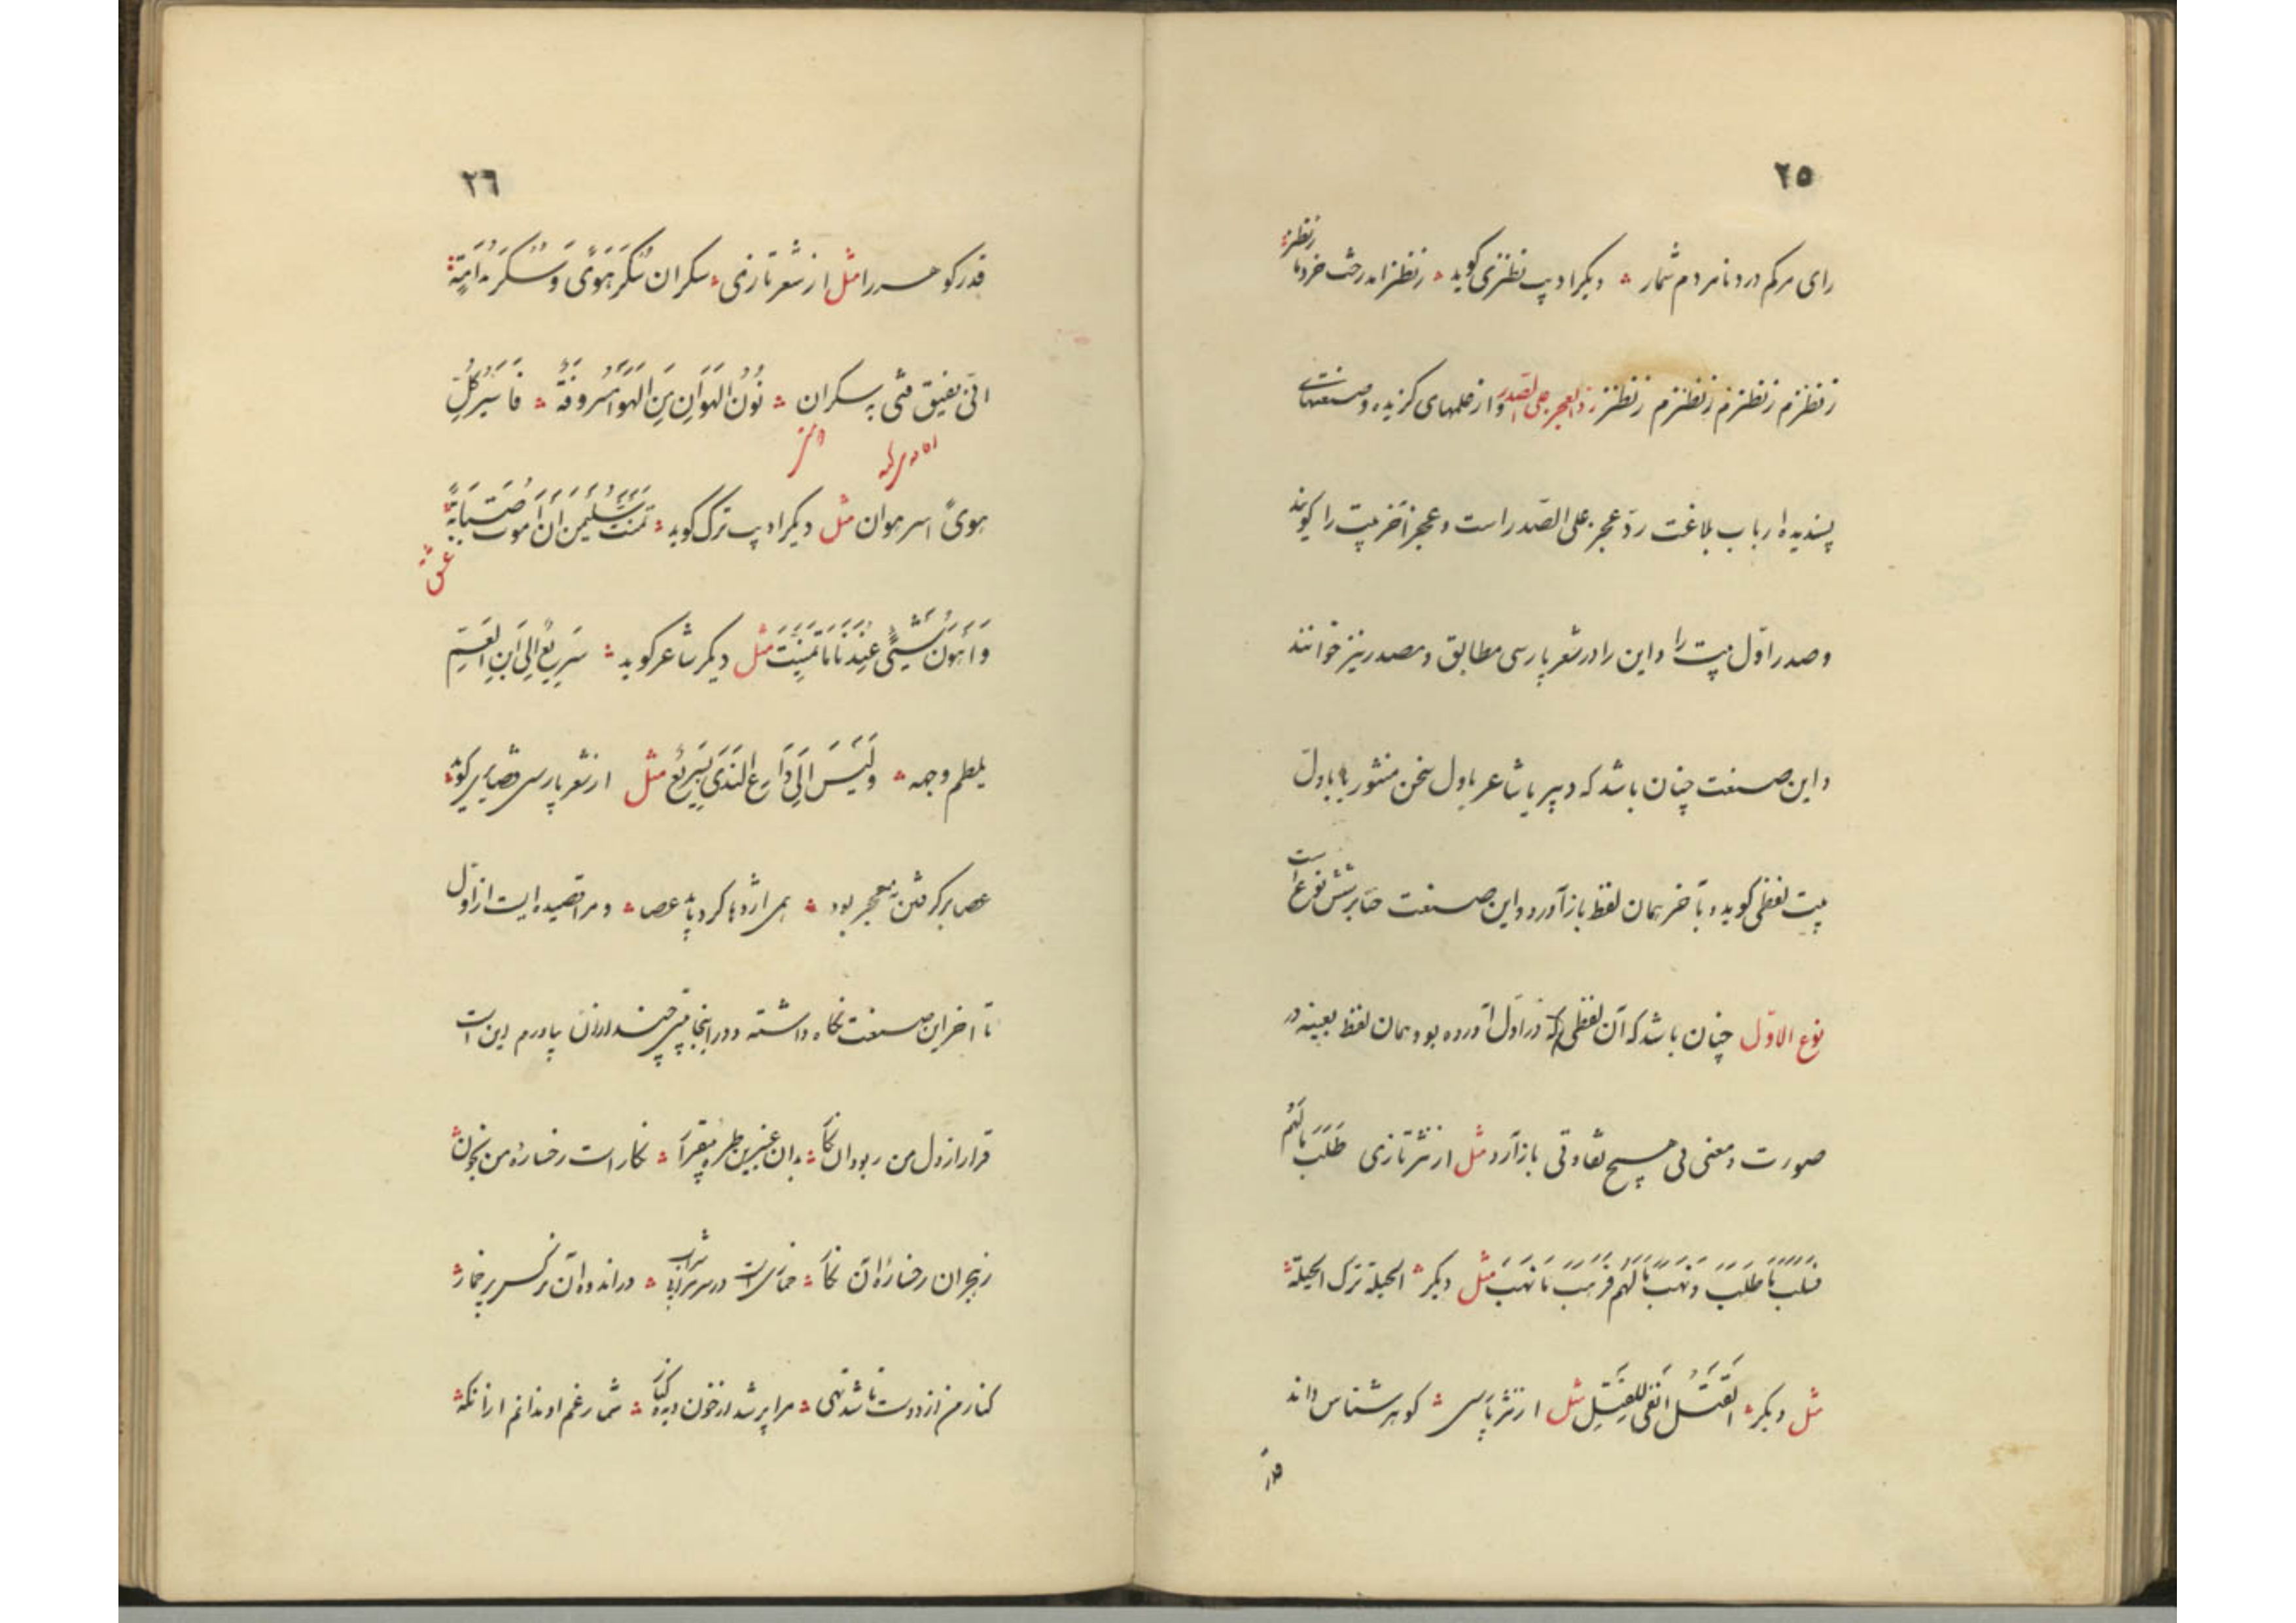 ٢٥
رای مرکم درد نامردم شمار ؞ دیکر ادیب نطنزی کوید ؞ زنطنز امد درخت خرد با
ز نطنزم ز نطنزم ز نطنزم ز نطنز ردّ العجز علی الصّدر و از عملهای کزیده و صنعتهای
پسندیده ارباب بلاغت ردّ عجز علی الصّدر است و عجز آخر بیت را کویند
و صدر اوّل بیت را و این را در شعر پارسی مطابق و مصدر نیز خوانند
و این صنعت چنان باشد که دبیر یا شاعر باول سخن منثور یا باوّل
بیت لفظی کوید و بآخر همان لفظ باز آورد و این صنعت بر شش نوع است
نوع الاوّل چنان باشد که آن لفظی که در اوّل آورده بود همان لفظ بعینه در
صورت و معنی بی هیچ تفاوتی باز آرد مثل از نثر تازی طَلَبَ مالَهُم
فسَلَبَ ما طَلَبَ و نهَبَ مالَهُم فوَهَبَ ما نهَبَ مثل دیکر ؞ الحیلة ترک الحیلة ؞
مثل دیکر ؞ القَتلُ انفی للقَتلِ مثل از نثر پارسی ؞ کوهر شناس داند
قدر
٢٦
قدر کوهر را مثل از شعر تازی ؞ سکران سُکرُ هَویً وَ سُکرُ مُدامَةٍ ؞
انّی یفیق فتی به سکران ؞ نُونُ الهَوانِ مِنَ الهَوا مَسروقَةٌ ؞ فَاَسیرُ کُلِّ
هویً اسیر هوان مثل دیکر ادیب ترک کوید ؞ تَمنَّت سُلَیمی اَن اَموتَ صَبابَةً ؞
عشق
وَ اَهوَنُ شَیئیً عِندَنا ما تَمنَّت مثل دیکر شاعر کوید ؞ سَریعٌ اِلی ابنِ العَمِّ
یلطم وجهه ؞ وَ لَیسَ اِلی داعِ النَدی بِسَریعٌ مثل از شعر پارسی کوید ؞
عصا برکرفتن نه معجز بود ؞ همی اژدها کرد باید عصا ؞ و مرا قصیده ایست از اوّل
تا آخر این صنعت نکاه داشته و در اینجا بیتی چند از آن بیاورم این است
قرار از دل من ربود آن نکار ؞ بدان عنبرین طره بیقرار ؞ نکار است رخسارهٔ من بخون ؞
ز هجران رخسارهٔ آن نکار ؞ خماری است در سر مرا بی شراب ؞ در اندوه آن نرکس پر خمار ؞
کنار من از دوست تا شد تهی ؞ مرا پر شد از خون دیده کنار ؞ شمار غم او ندانم از آنکه ؞